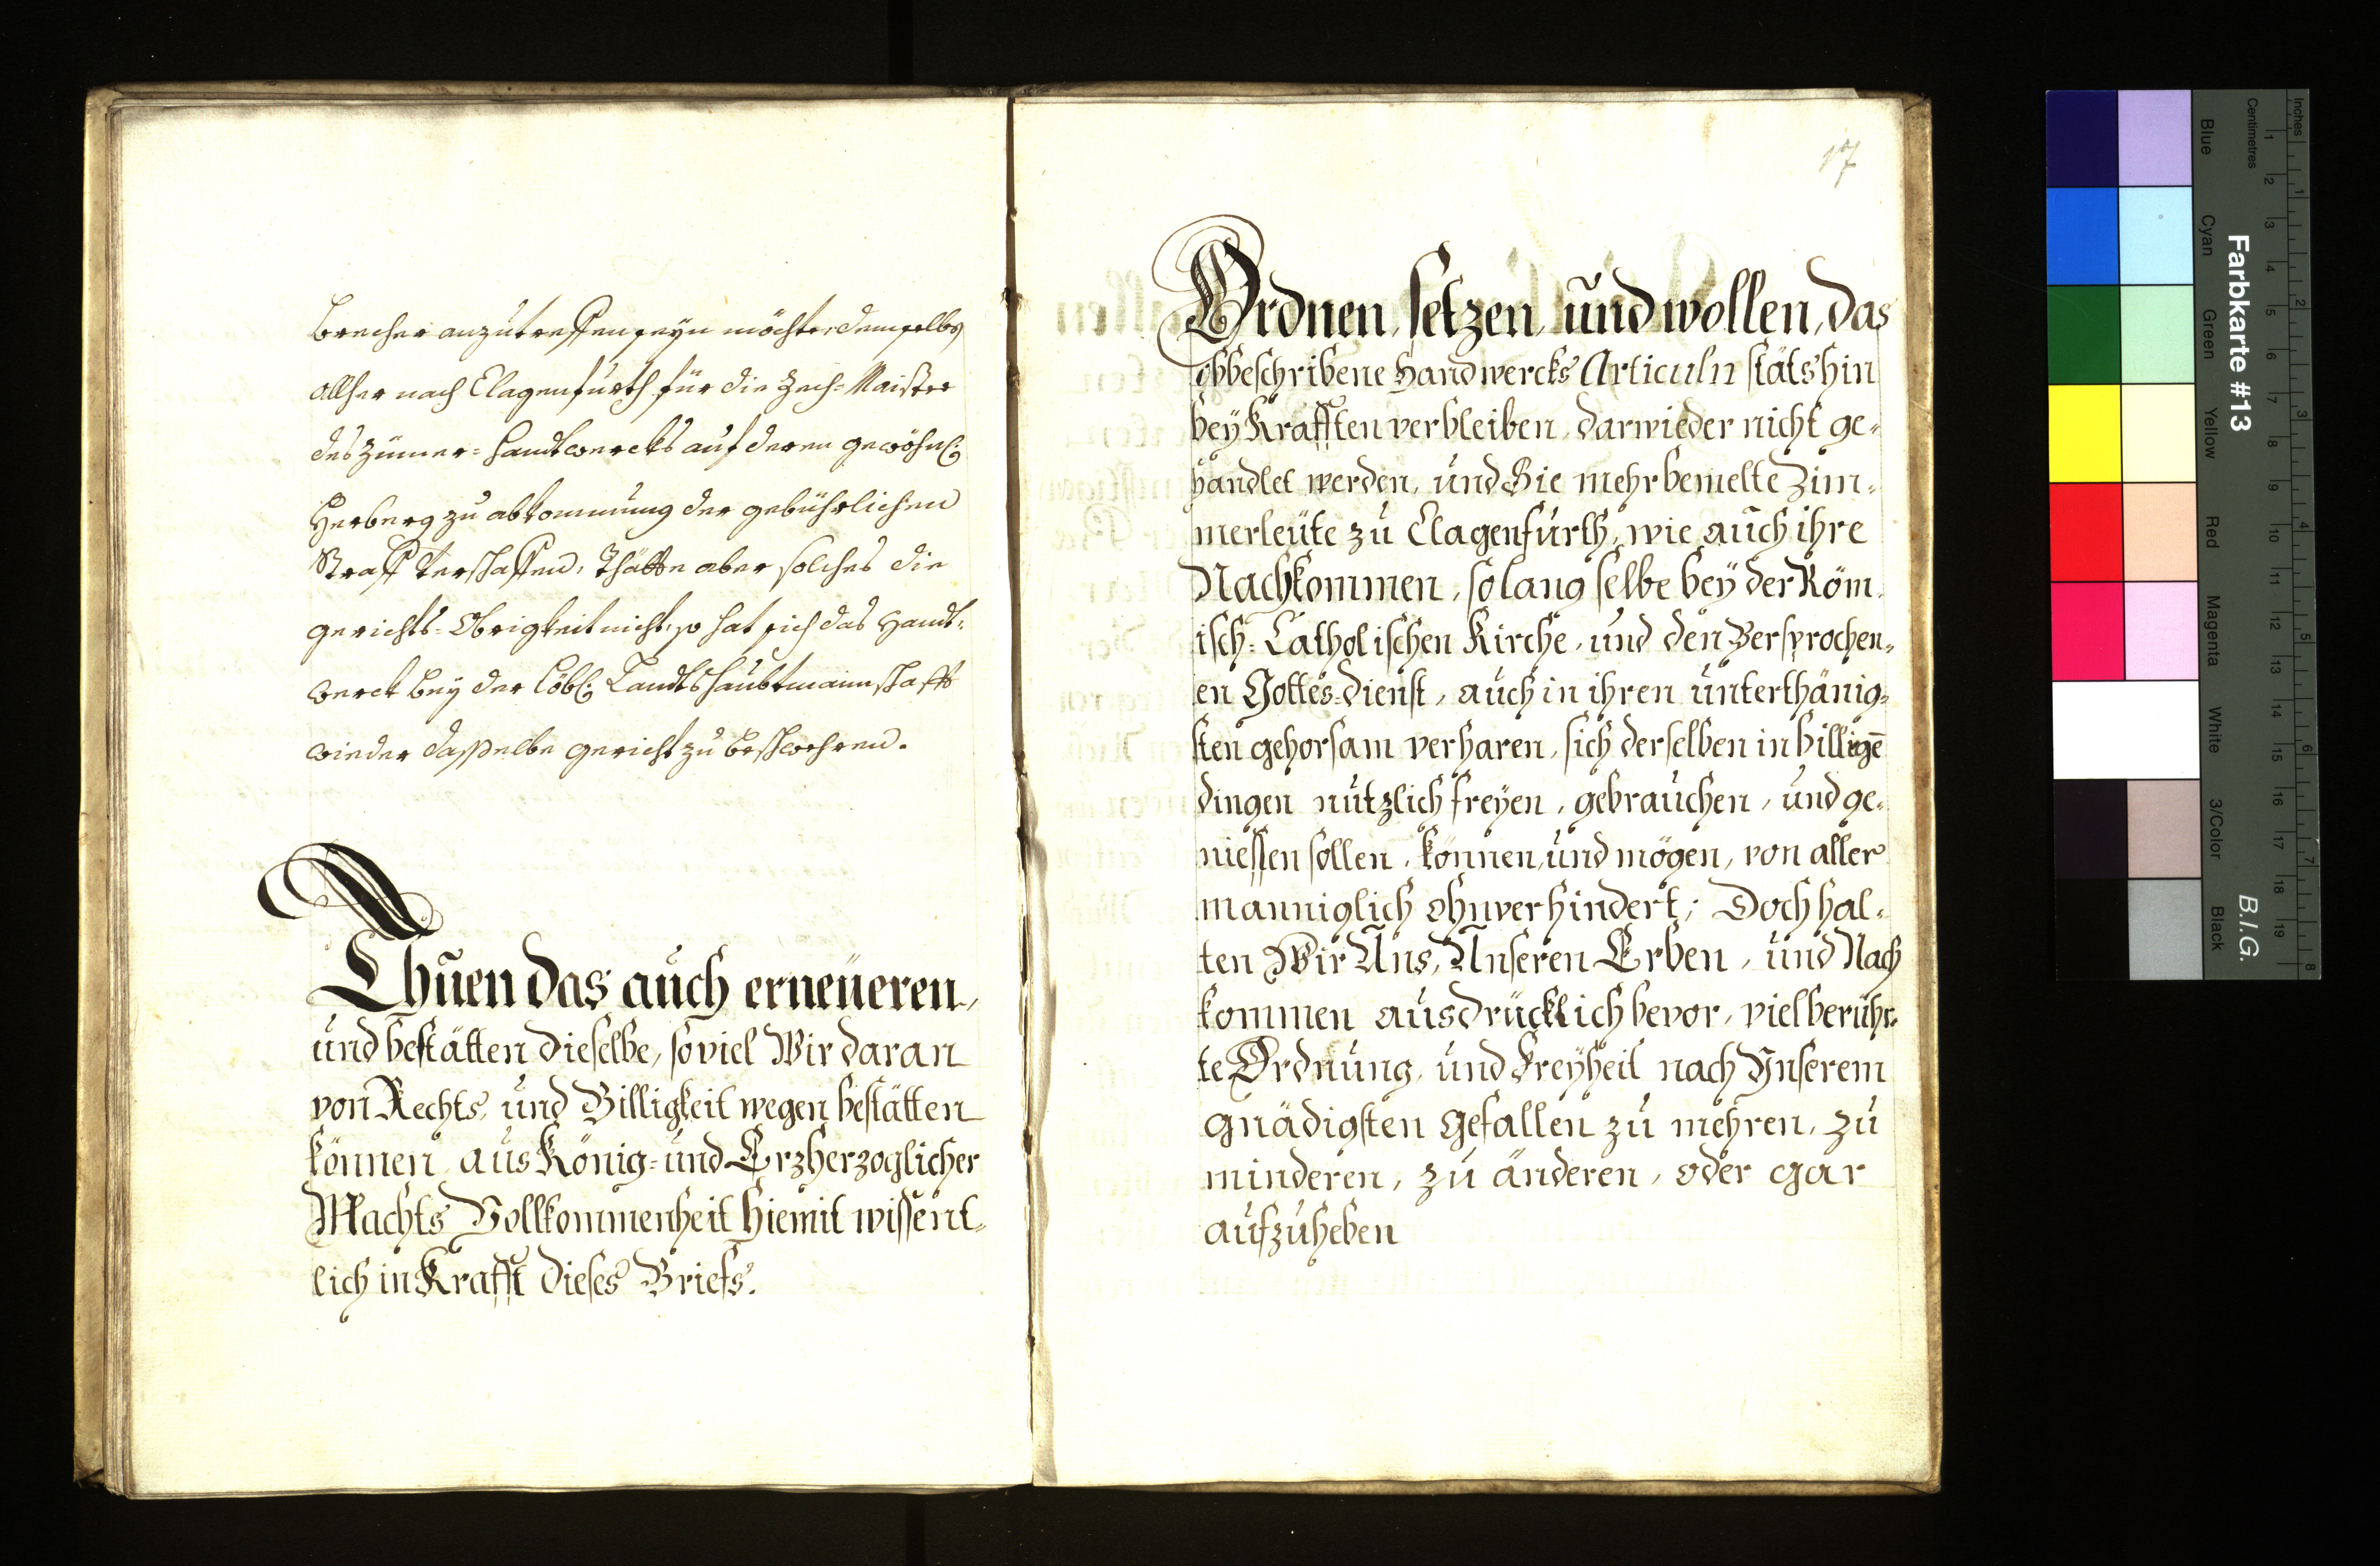 brecher anzutreffen seyn möchte, demselben
allher nach Clagenfurth für die Zech=Maister
des Zimer=Handtwercks auf deren gewöhnl:
Herberg zu abkommung der gebührlichen
Straff verschaffen, Thätte aber solches die
gerichts=Obrigkeit nicht, so hat sich das Handt=
werck bey der Löbl: Landtshaubtmannschafft
wieder dasselbe gericht zu beschwehren.
Thuen das auch erneüeren,
und bestätten dieselbe, soviel Wir daran
von Rechts, und Billigkeit wegen bestätten
können, aus König= und Erzherzoglicher
Machts Vollkommenheit hiemit wissent=
lich in Krafft dieses Briefs.
17
Ordnen, setzen, und wollen, das
obbeschribene Handwercks Articuln stäts hin
bey Krafften verbleiben, darwieder nicht ge=
handlet werden, und Sie mehr bemelte Zim=
merleüte zu Clagenfurth, wie auch ihre
Nachkommen, so lang selbe bey der Röm.
isch=Catholischen Kirche, und den Versprochen=
en Gottes=dienst, auch in ihren unterthänig=
sten gehorsam verharen, sich derselben in billigē
dingen nutzlich freyen, gebrauchen, und ge=
niessen sollen, können, und mögen, von aller
manniglich ohnverhindert; Doch hal=
ten Wir Uns, Unseren Erben, und Nach
kommen ausdrücklich bevor, viel berühr=
te Ordnung, und Freyheit nach Unserem
gnädigsten gefallen zu mehren, zu
minderen, zu änderen, oder gar
aufzuheben
Inches
Centimetres
Farbkarte #13
B.I.G.
Blue
Cyan
Green
Yellow
Red
Magenta
White
3/Color
Black
1 2 3 4 5 6 7 8 9 10 11 12 13 14 15 16 17 18 19
1 2 3 4 5 6 7 8